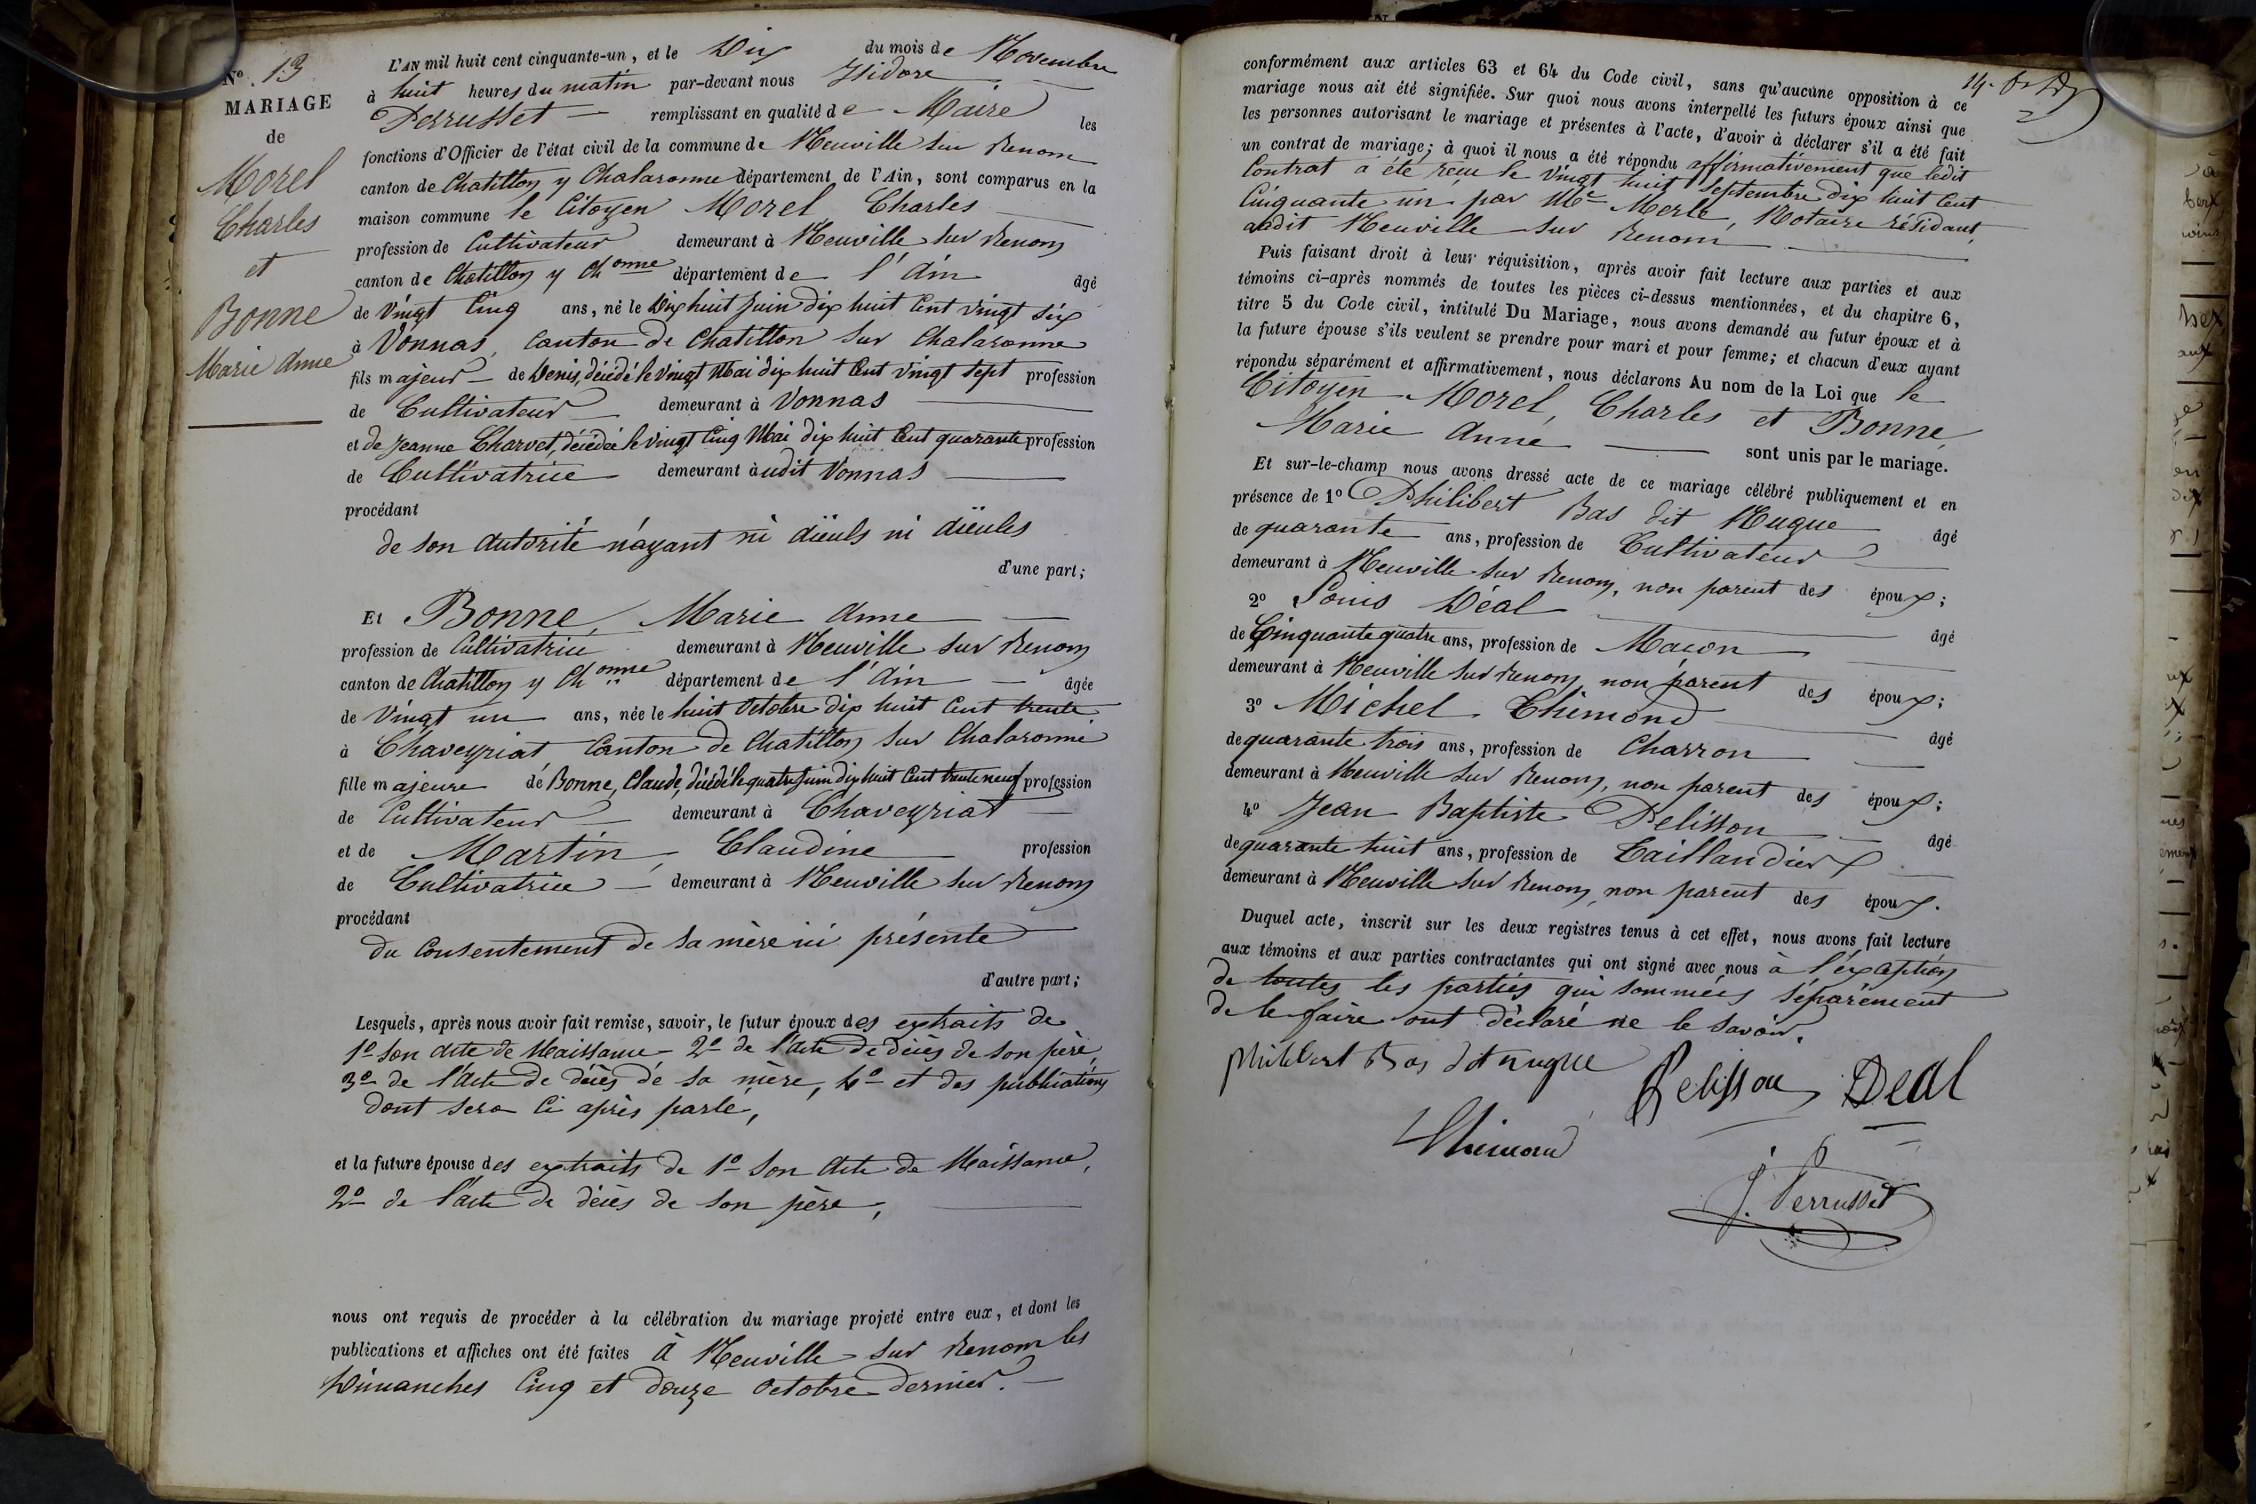 N° 13
MARIAGE
de
Morel
Charles
et
Bonne
Marie Anne
L'AN mil huit cent cinquante-un, et le Dix du mois de Novembre
à huit heures du matin par-devant nous Isidore
Perrusset remplissant en qualité de Maire les
fonctions d'Officier de l'état civil de la commune de Neuville sur Renom
canton de Chatillon y Chalaronne département de l'Ain, sont comparus en la
maison commune le Citoyen Morel Charles
profession de Cultivateur demeurant à Neuville sur Renom
canton de Chatillon y Chonne département de l'Ain âgé
de Vingt Cinq ans, né le Dix huit Juin dix huit Cent vingt six
à Vonnas, Canton de Chatillon sur Chalaronne
fils majeur de Denis, décédé le Vingt Mai dix huit Cent vingt sept profession
de Cultivateur demeurant à Vonnas
et de Jeanne Charvet, décédée le vingt Cinq Mai dix huit Cent quarante profession
de Cultivatrice demeurant audit Vonnas
procédant
de son autorité n'ayant ni aïeuls ni aïeules
d'une part;
Et Bonne, Marie Anne
profession de Cultivatrice demeurant à Neuville sur Renom
canton de Chatillon y Chonne département de l'Ain âgée
de Vingt un ans, née le huit Octobre dix huit Cent trente
à Chaveyriat Canton de Chatillon sur Chalaronne
fille majeure de Bonne, Claude, décédé le quatre Juin dix huit Cent trente neuf profession
de Cultivateur demeurant à Chaveyriat
et de Martin, Claudine profession
de Cultivatrice demeurant à Neuville sur Renom
procédant
du Consentement de sa mère ici présente
d'autre part;
Lesquels, après nous avoir fait remise, savoir, le futur époux des extraits de
1° son acte de Naissance 2° de l'acte de décès de son père,
3° de l'acte de décès de sa mère, 4° et des publications
dont sera Ci après parlé,
et la future épouse des extraits de 1° son acte de Naissance,
2° de l'acte de décès de son père,
nous ont requis de procéder à la célébration du mariage projeté entre eux, et dont les
publications et affiches ont été faites à Neuville sur Renom les
Dimanches Cinq et douze Octobre dernier.
conformément aux articles 63 et 64 du Code civil, sans qu'aucune opposition à ce
mariage nous ait été signifiée. Sur quoi nous avons interpellé les futurs époux ainsi que
les personnes autorisant le mariage et présentes à l'acte, d'avoir à déclarer s'il a été fait
un contrat de mariage; à quoi il nous a été répondu affirmativement que ledit
Contrat a été reçu le Vingt huit Septembre dix huit Cent
Cinquante un par Me Merle, Notaire résidant
audit Neuville sur Renom
Puis faisant droit à leur réquisition, après avoir fait lecture aux parties et aux
témoins ci-après nommés de toutes les pièces ci-dessus mentionnées, et du chapitre 6,
titre 5 du Code civil, intitulé Du Mariage, nous avons demandé au futur époux et à
la future épouse s'ils veulent se prendre pour mari et pour femme; et chacun d'eux ayant
répondu séparément et affirmativement, nous déclarons Au nom de la Loi que le
Citoyen Morel, Charles et Bonne
Marie Anne sont unis par le mariage.
Et sur-le-champ nous avons dressé acte de ce mariage célébré publiquement et en
présence de 1° Philibert Bas dit Nugue âgé
de quarante ans, profession de Cultivateur
demeurant à Neuville sur Renom, non parent des époux;
2° Louis Déal âgé
de Cinquante quatre ans, profession de Macon
demeurant à Neuville sur Renom, non parent des époux;
3° Michel Thimond âgé
de quarante trois ans, profession de Charron
demeurant à Neuville sur Renom, non parent des époux;
4° Jean Baptiste Pelisson âgé
de quarante huit ans, profession de Taillandier
demeurant à Neuville sur Renom, non parent des époux.
Duquel acte, inscrit sur les deux registres tenus à cet effet, nous avons fait lecture
aux témoins et aux parties contractantes qui ont signé avec nous à l'exception
de toutes les parties qui sommées séparément
de le faire ont déclaré ne le savoir.
philibert Bas dit nugue Pelisson Déal
Thimond
J. Perrusset